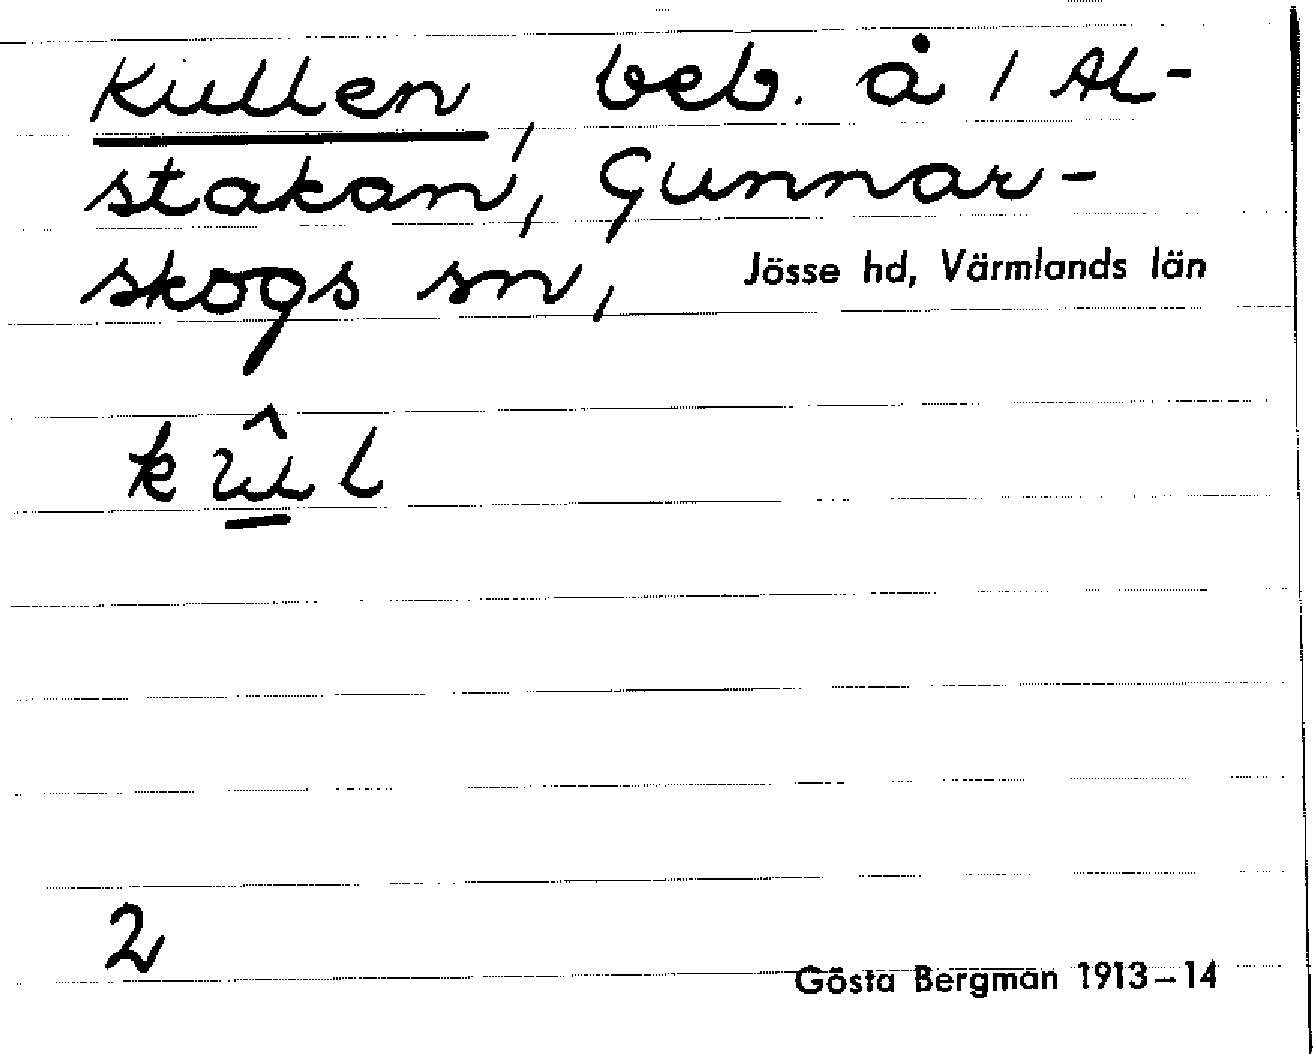 Kullen, beb. å 1 Al-
stakan, Gunnar-
skogs sn, Jösse hd, Värmlands län
2
Gösta Bergman 1913-14